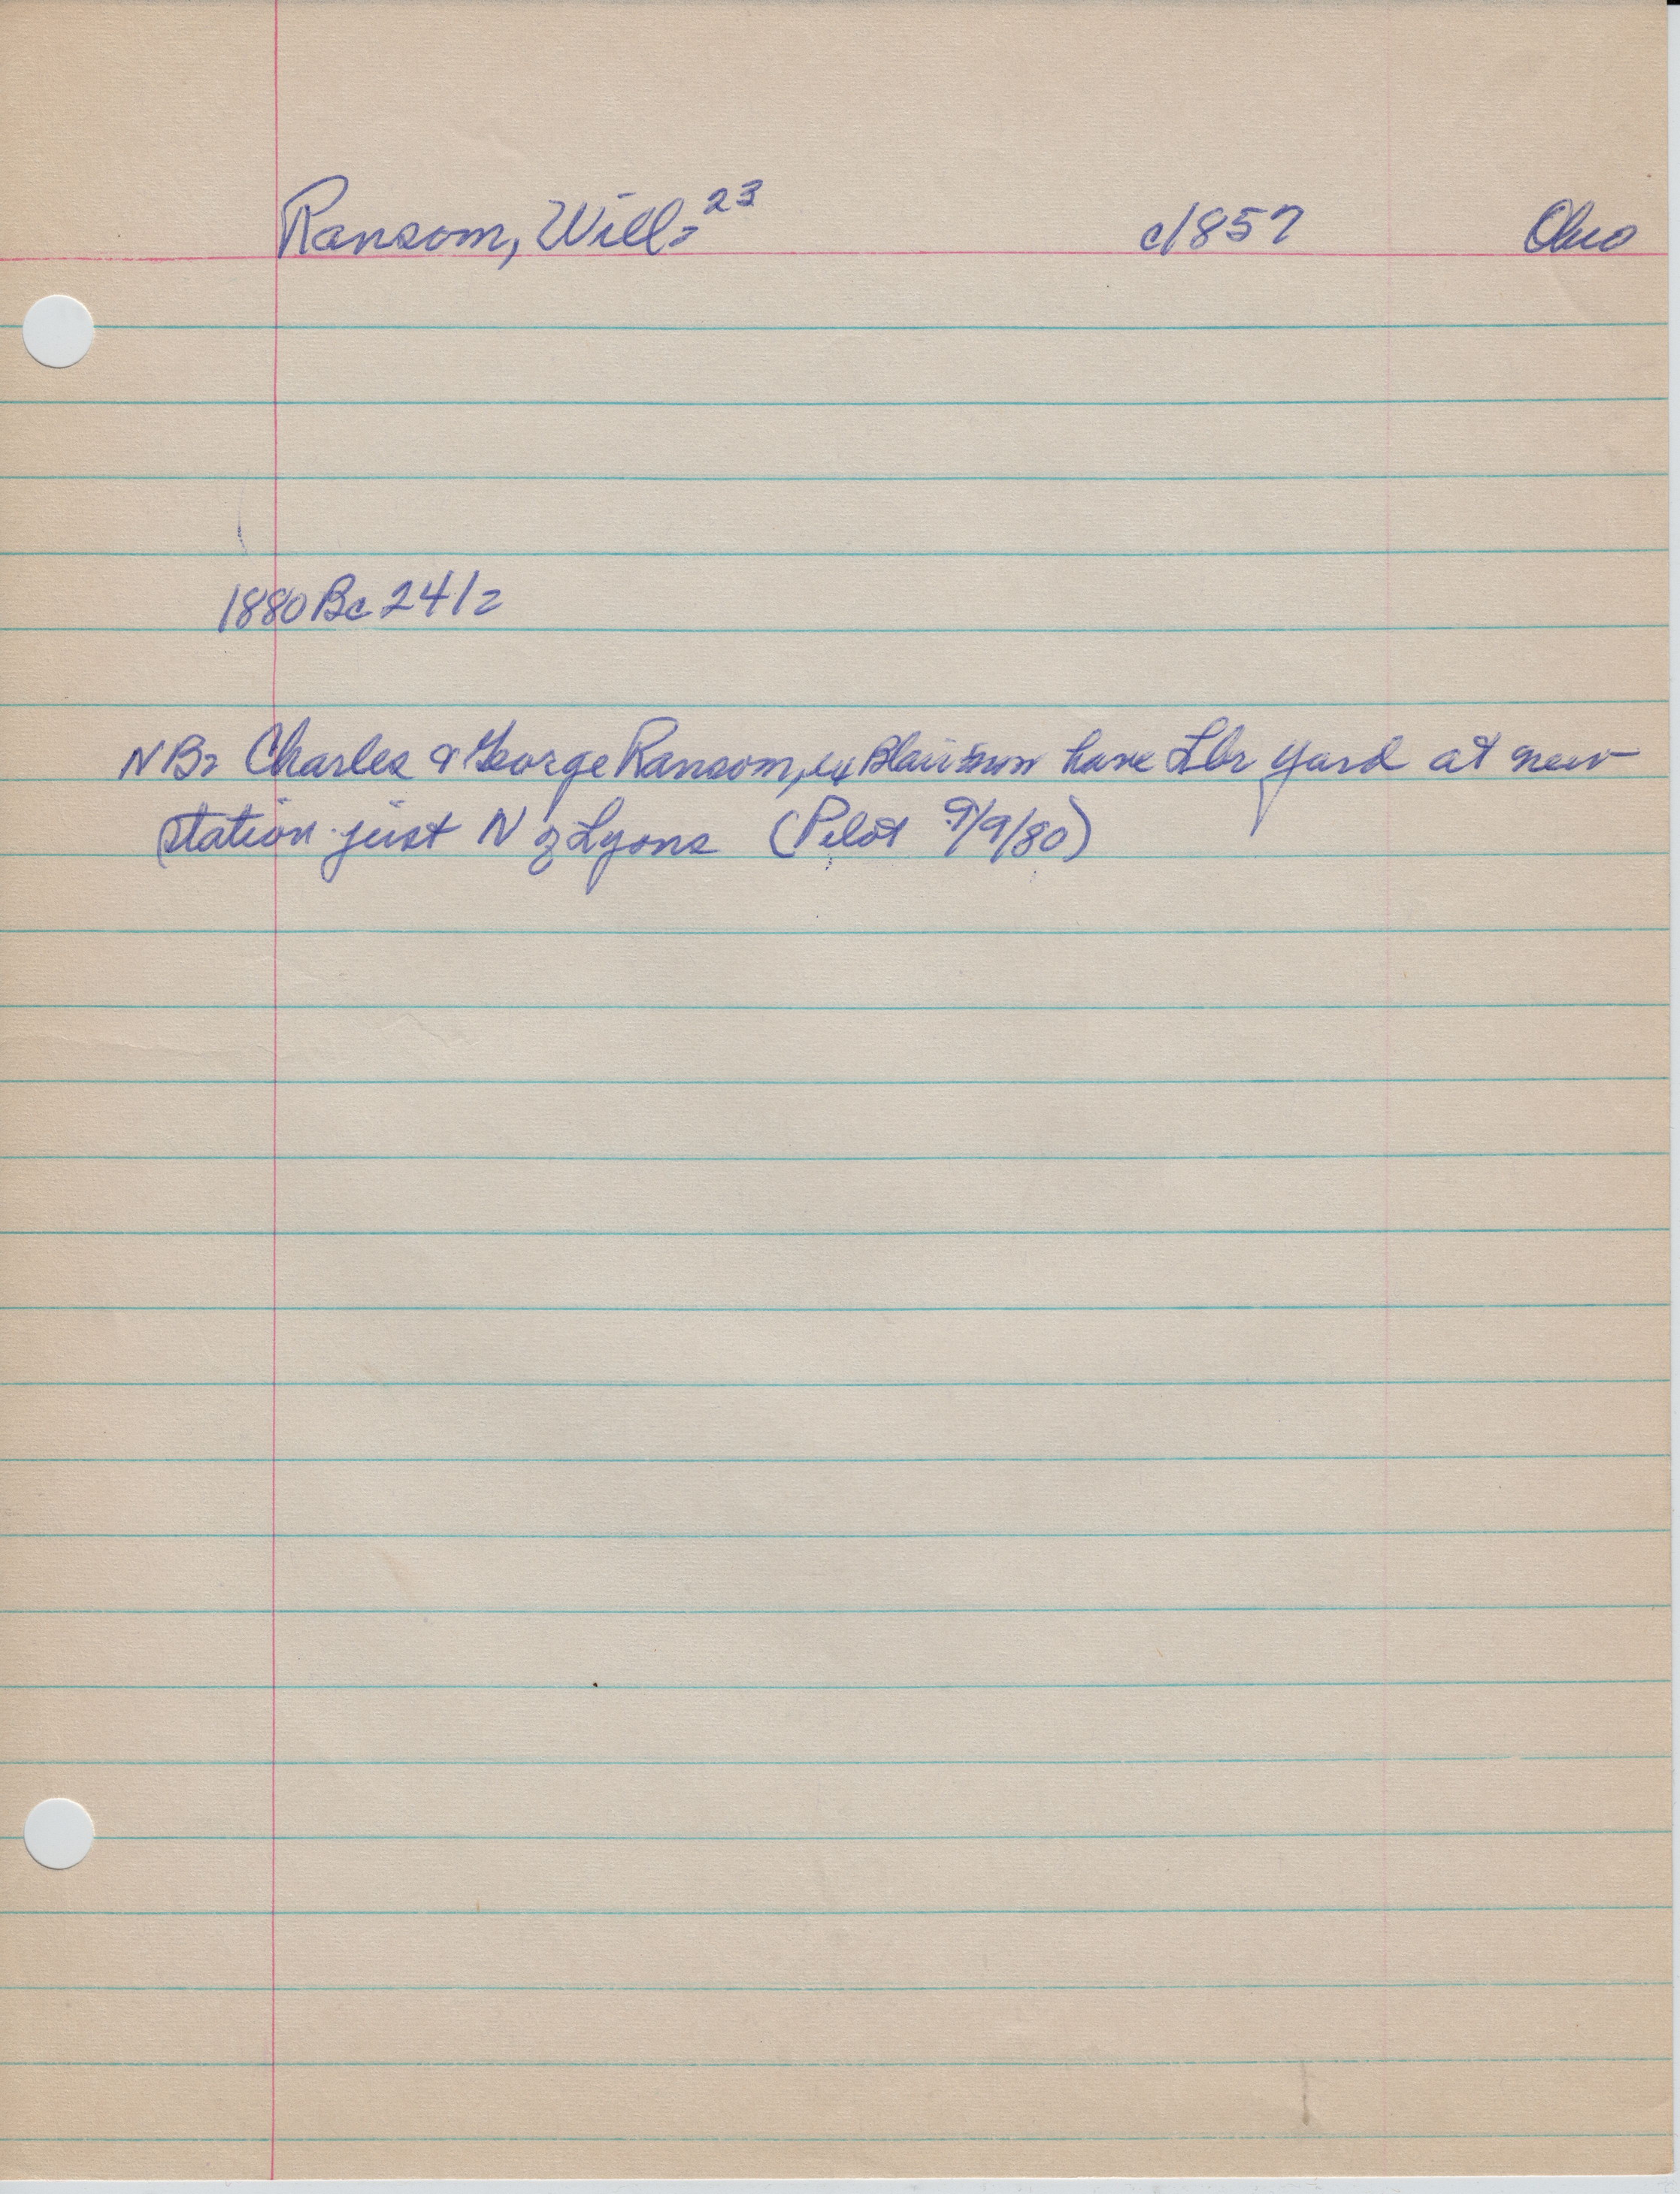 Ransom, Will: 23 c1857 Ohio
1880 Bc 24/2
NB: Charles & George Ransom, ex Blairstown have Lbr Yard at new
station just N of Lyons (Pilot 9/9/80)